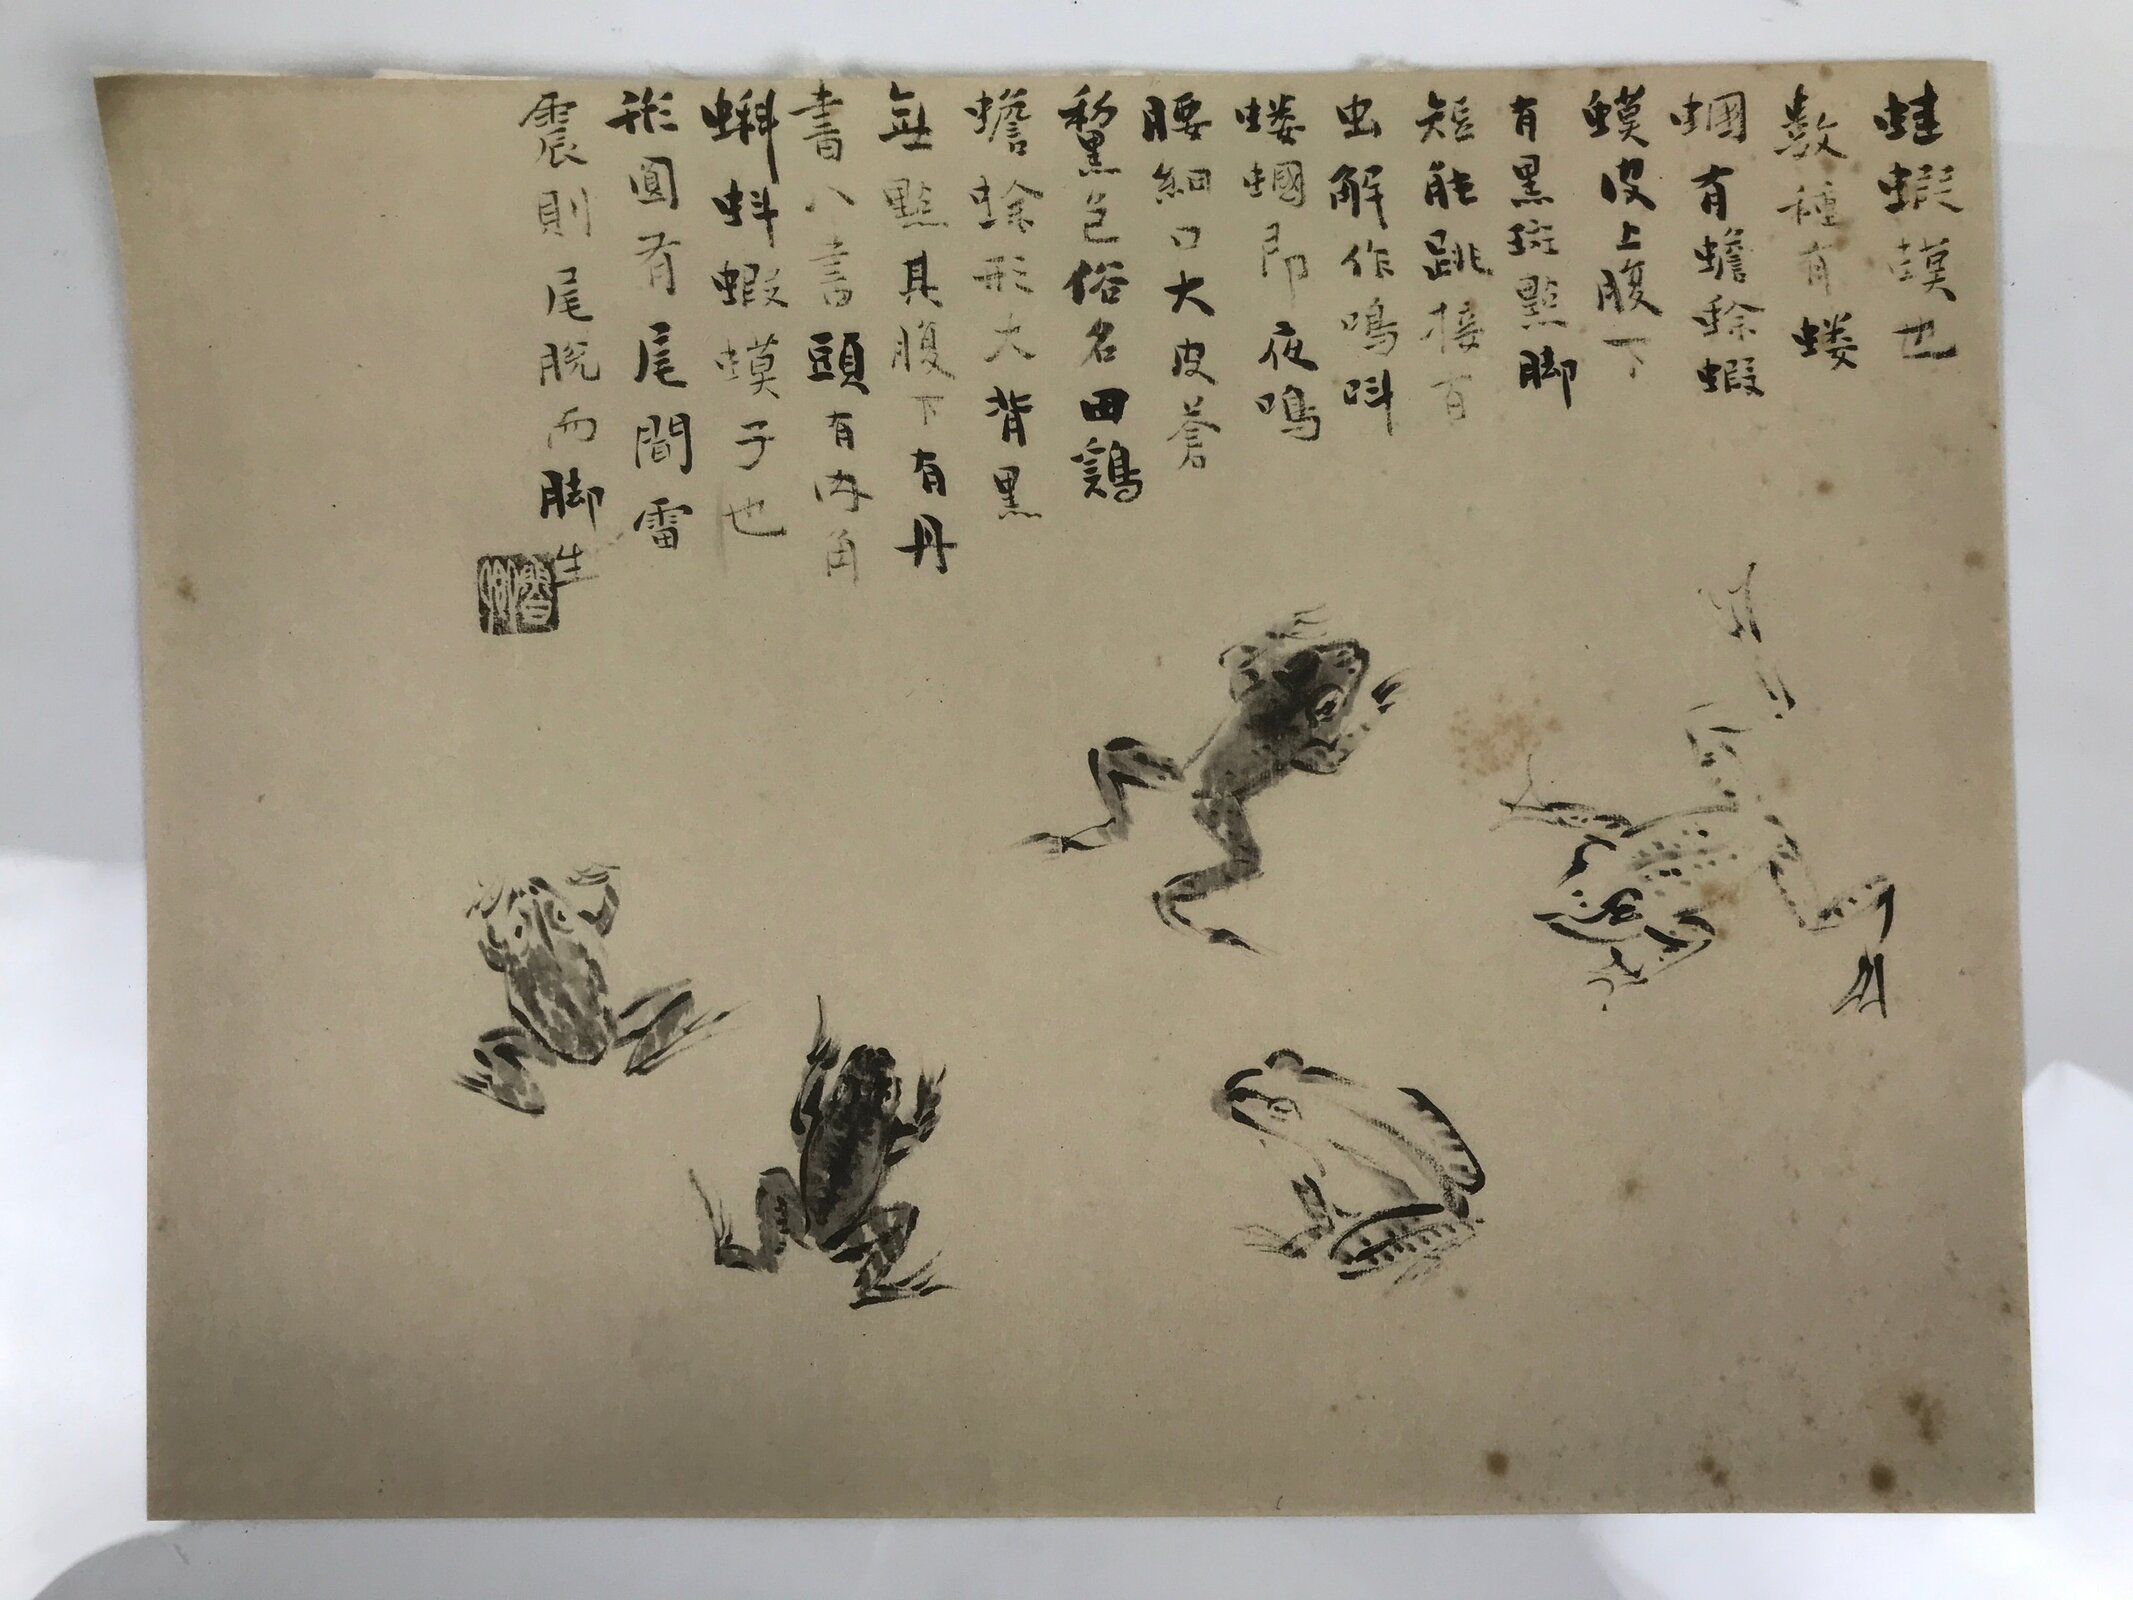 蛙蝦蟆也
數種有螻
蟈有蟾蜍蝦
蟆皮上腹下
有黑斑點脚
短能跳接百
虫解作鳴呌
螻蟈即夜鳴
腰細口大皮蒼
黧色俗名田鶏
蟾蜍形大背黒
無點其腹下有丹
書八書頭有内角
蝌蚪蝦蟆子也
形圓有尾間雷
震則尾脱而脚生